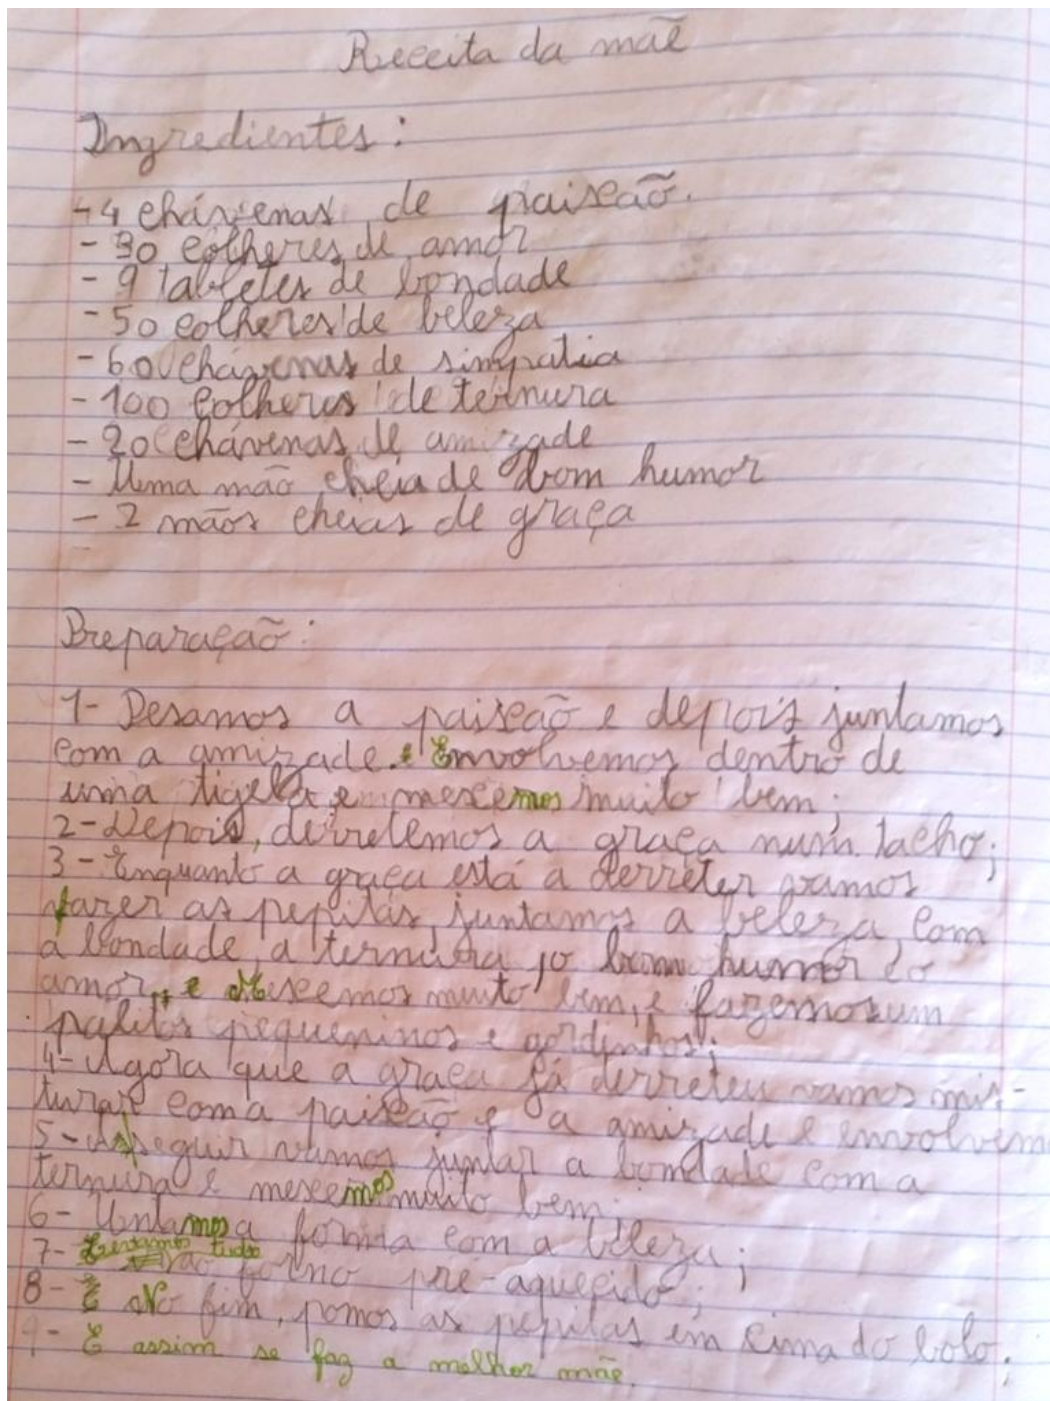 Receita da mãe
Ingredientes:
- 4 chávenas de paixão.
- 30 colheres de amor
- 9 tabletes de bondade
- 50 colheres de beleza
- 60 chávenas de simpatia
- 100 colheres de ternura
- 20 chávenas de amizade
- Uma mão cheia de bom humor
- 2 mãos cheias de graça
Preparação:
1- Desamos a paixão e depois juntamos
com a amizade. Envolvemos dentro de
uma tigela e mexemos muito bem;
2- Depois, derretemos a graça num tacho;
3- Enquanto a graça está a derreter vamos
fazer as pepitas, juntamos a beleza, com
a bondade, a ternura, o bom humor e o
amor, e Mexemos muito bem, e fazemos um
palitos pequeninos e gordinhos;
4- Agora que a graça já derreteu vamos mis-
turar com a paixão e a amizade e envolvem
5- Asseguir vamos juntar a bondade com a
ternura e mexemos muito bem;
6- Untamos a forma com a beleza;
7- Levamos tudo ao forno pré-aquecido;
8- E No fim, pomos as pepitas em cima do bolo;
9- E assim se faz a melhor mãe.